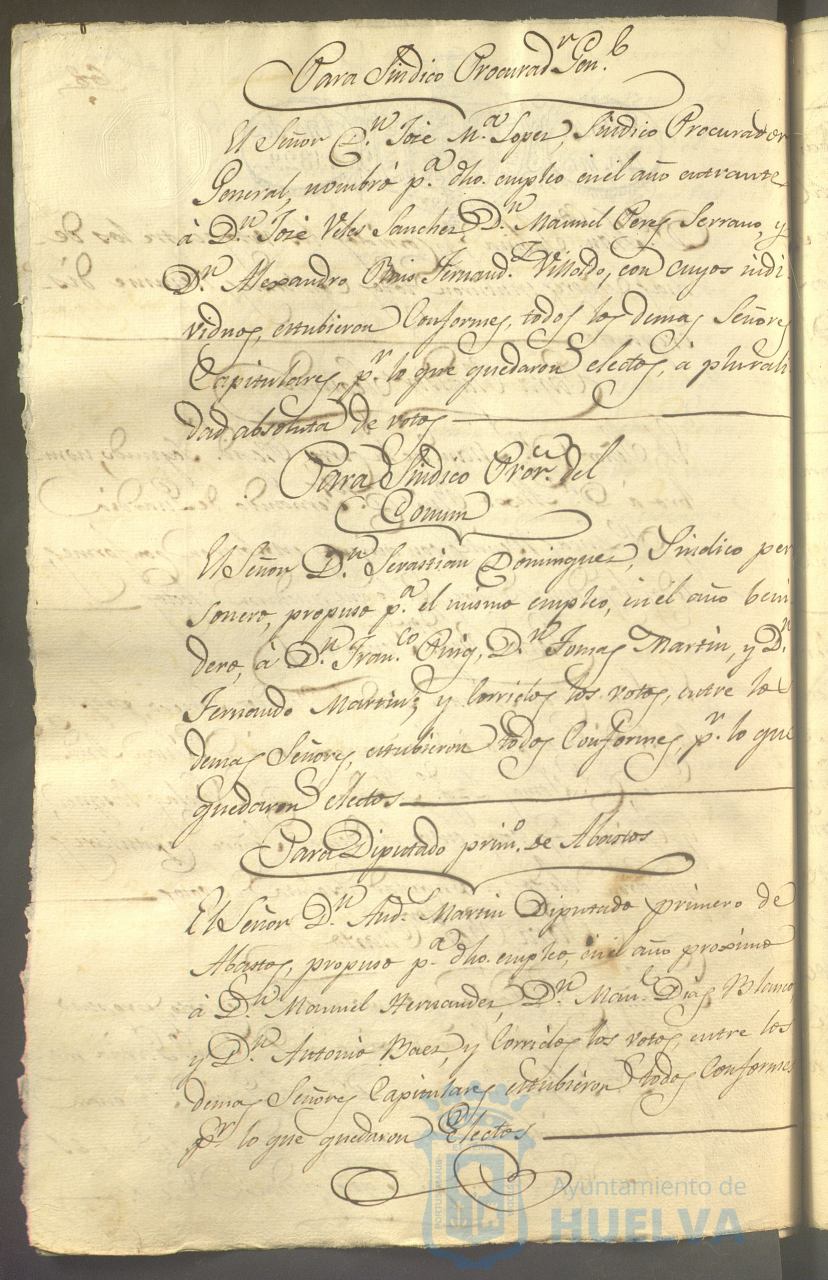 Para Sindico Procurad.r Gen.l
El Señor D.n José M.a Lopez, Sindico Procurador
General, nombró p.a dho. empleo en el año entrante
á D.n José Veles Sanchez, D.n Manuel Perez Serrano, y
D.n Alexandro Ruis Fernand.z Villoldo, con cuyos indi
viduos, estubieron Conformes, todos los demas Señores
Capitulares, p.r lo que quedaron electos, á plurali
dad absoluta de votos
Para Sindico Pror. del
Comun
El Señor D.n Sevastian Dominguez, Sindico per
sonero, propuso p.a el mismo empleo, en el año beni
dero, á D.n Fran.co Puig, D.n Tomas Martin, y D.n
Fernando Martinz y Corridos los votos, entre lo
demas Señores, estubieron todos Conformes, p.r lo que
quedaron electos
Para Diputado prim.o de Abastos
El Señor D.n And.s Martin Diputado primero de
Abastos, propuso p.a dho. empleo, en el año proximo
á D.n Manuel Hernandez, D.n Man.l Dias Blanco
y D.n Antonio Baez, y Corridos los votos, entre los
demas Señores Capitulares estubieron todos Conformes
p.r lo que quedaron Electos
Ayuntamiento de
HUELVA